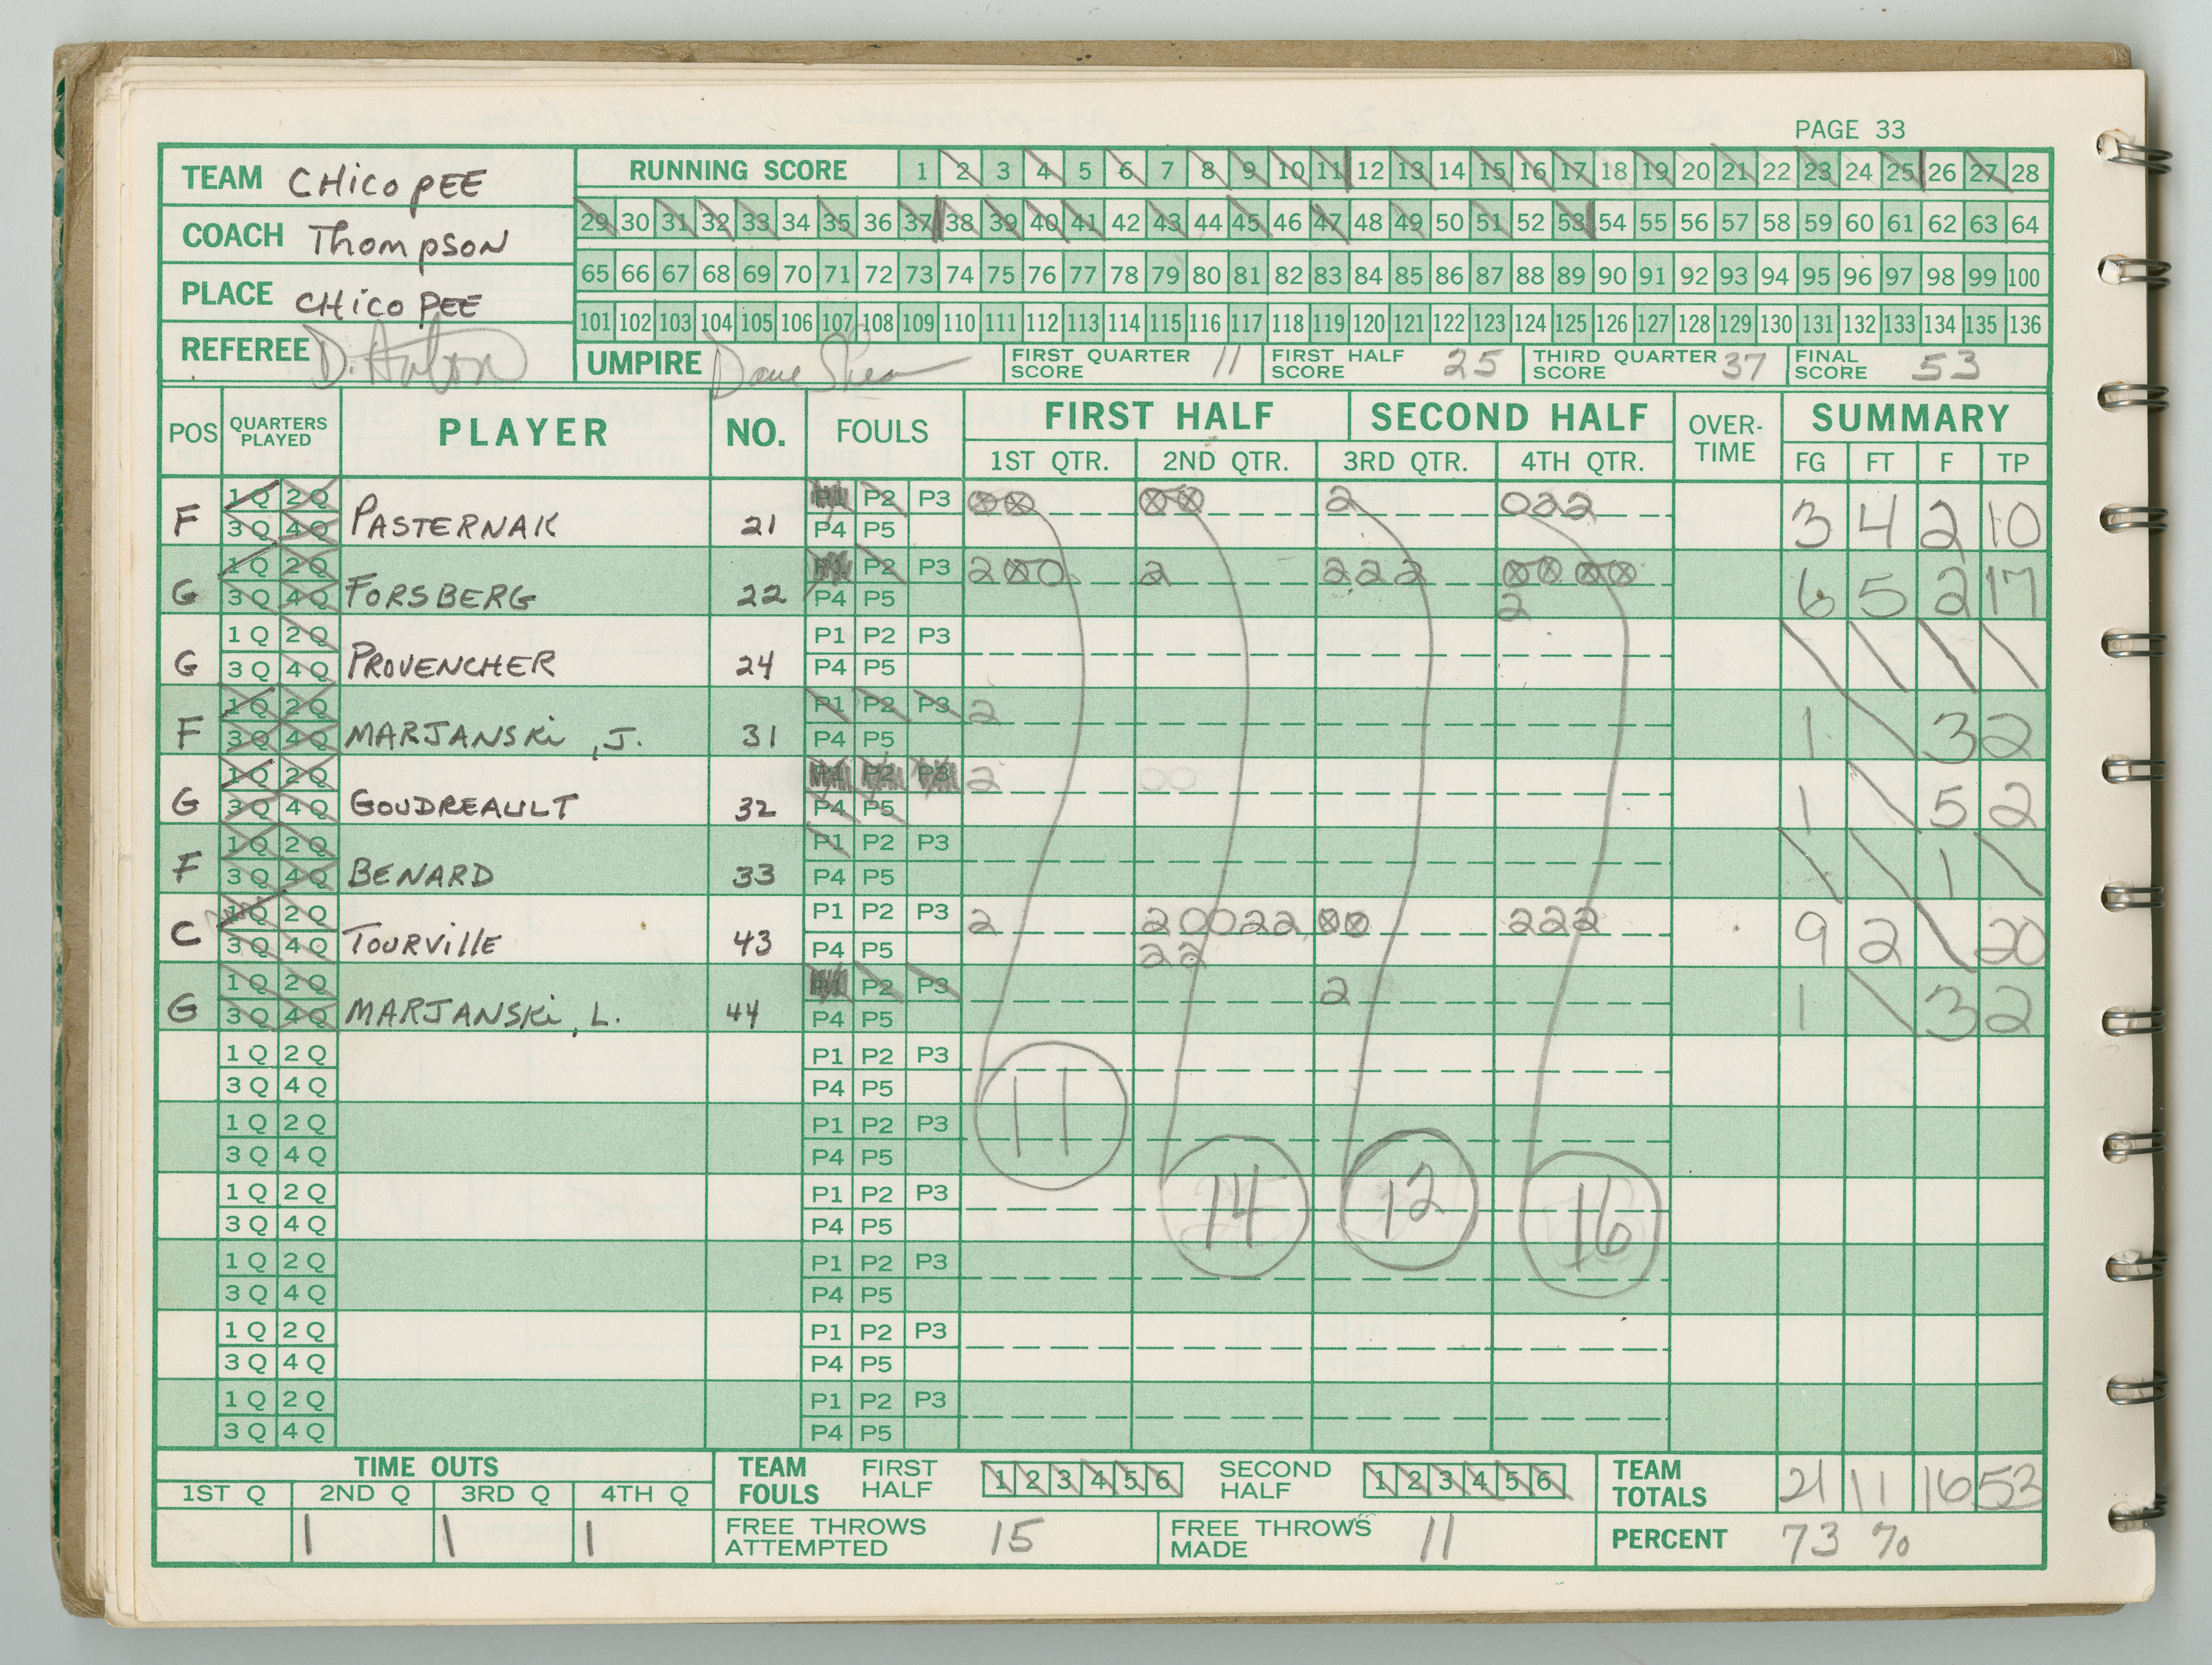 PAGE 33
TEAM CHicopEE
COACH Thompson
PLACE CHicopEE
REFEREE D.
RUNNING SCORE 1 2 3 4 5 6 7 8 9 10 11 12 13 14 15 16 17 18 19 20 21 22 23 24 25 26 27 28
29 30 31 32 33 34 35 36 37 38 39 40 41 42 43 44 45 46 47 48 49 50 51 52 53 54 55 56 57 58 59 60 61 62 63 64
65 66 67 68 69 70 71 72 73 74 75 76 77 78 79 80 81 82 83 84 85 86 87 88 89 90 91 92 93 94 95 96 97 98 99 100
101 102 103 104 105 106 107 108 109 110 111 112 113 114 115 116 117 118 119 120 121 122 123 124 125 126 127 128 129 130 131 132 133 134 135 136
UMPIRE Dave Shea FIRST QUARTER SCORE 11 FIRST HALF SCORE 25 THIRD QUARTER SCORE 37 FINAL SCORE 53
POS QUARTERS PLAYED PLAYER NO. FOULS FIRST HALF SECOND HALF OVER-TIME SUMMARY
1ST QTR. 2ND QTR. 3RD QTR. 4TH QTR. FG FT F TP
F 1 Q 2 Q 3 Q 4 Q PASTERNAK 21 P1 P2 P3 P4 P5 ⊗⊗ ⊗⊗ 2 022 3 4 2 10
G 1 Q 2 Q 3 Q 4 Q FORSBERG 22 P1 P2 P3 P4 P5 2⊗0 2 222 ⊗⊗ ⊗⊗ 2 6 5 2 17
G 1 Q 2 Q 3 Q 4 Q PROVENCHER 24 P1 P2 P3 P4 P5
F 1 Q 2 Q 3 Q 4 Q MARJANSKi, J. 31 P1 P2 P3 P4 P5 2 1 3 2
G 1 Q 2 Q 3 Q 4 Q GOUDREAULT 32 P1 P2 P3 P4 P5 2 00 1 5 2
F 1 Q 2 Q 3 Q 4 Q BENARD 33 P1 P2 P3 P4 P5 1
C 1 Q 2 Q 3 Q 4 Q TOURVIllE 43 P1 P2 P3 P4 P5 2 20022 22 ⊗⊗ 222 9 2 20
G 1 Q 2 Q 3 Q 4 Q MARJANSKi, L. 44 P1 P2 P3 P4 P5 2 1 3 2
1 Q 2 Q 3 Q 4 Q P1 P2 P3 P4 P5 11
1 Q 2 Q 3 Q 4 Q P1 P2 P3 P4 P5
1 Q 2 Q 3 Q 4 Q P1 P2 P3 P4 P5 14 12 16
1 Q 2 Q 3 Q 4 Q P1 P2 P3 P4 P5
1 Q 2 Q 3 Q 4 Q P1 P2 P3 P4 P5
1 Q 2 Q 3 Q 4 Q P1 P2 P3 P4 P5
TIME OUTS TEAM FOULS FIRST HALF 1 2 3 4 5 6 SECOND HALF 1 2 3 4 5 6 TEAM TOTALS 21 11 16 53
1ST Q 2ND Q 3RD Q 4TH Q
1 1 1 FREE THROWS ATTEMPTED 15 FREE THROWS MADE 11 PERCENT 73 %